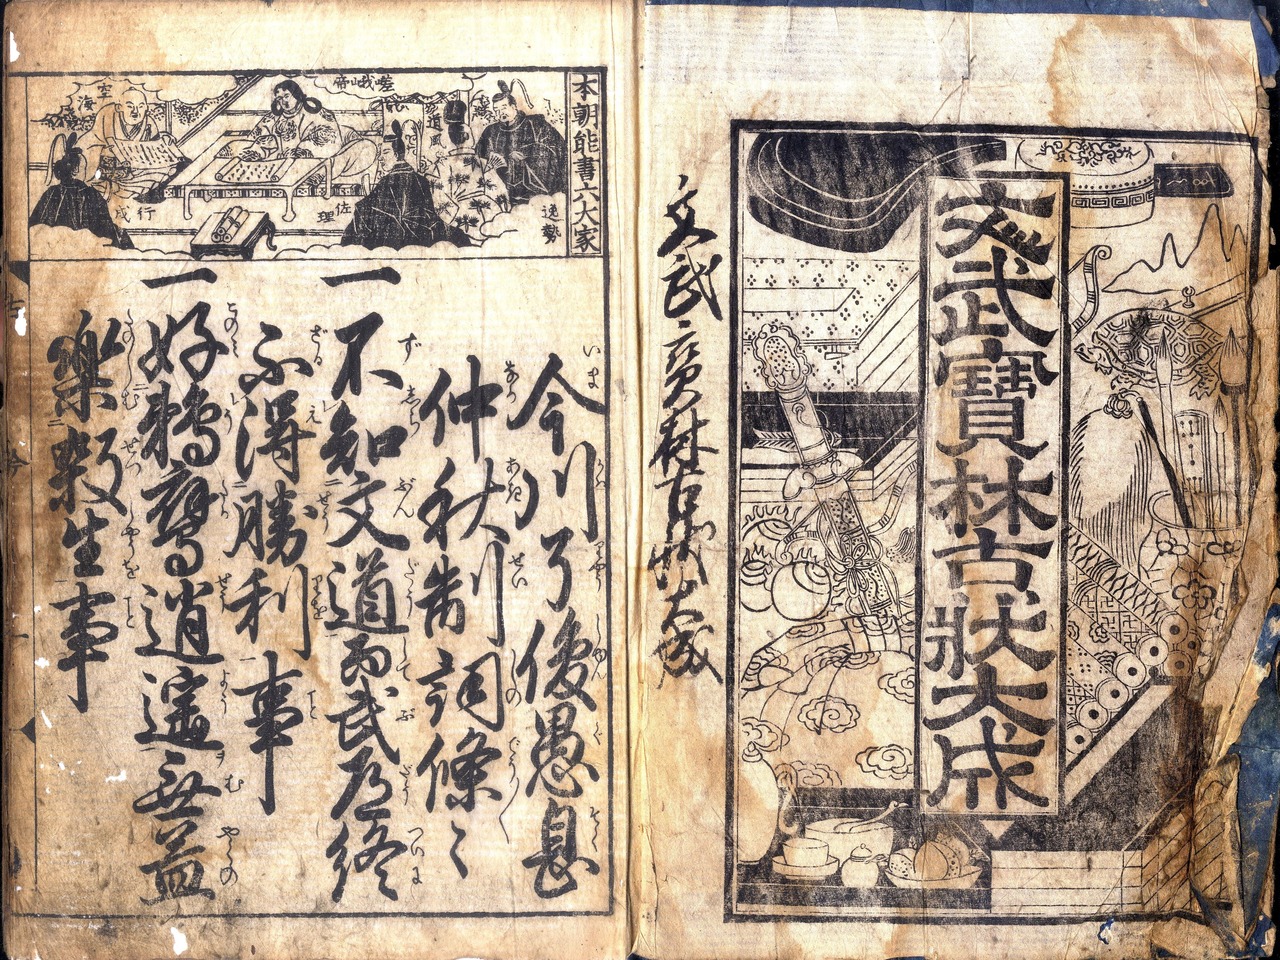 文武寶林古狀大成
文武寶林古狀大成
本朝能書六大家
逸勢
道風
嵯峨帝
佐理
空海
行成
今川了俊愚息
仲秋制詞條々
一不知文道而武道終
不得勝利事
一好鵜鷹逍遥無益
樂殺生事